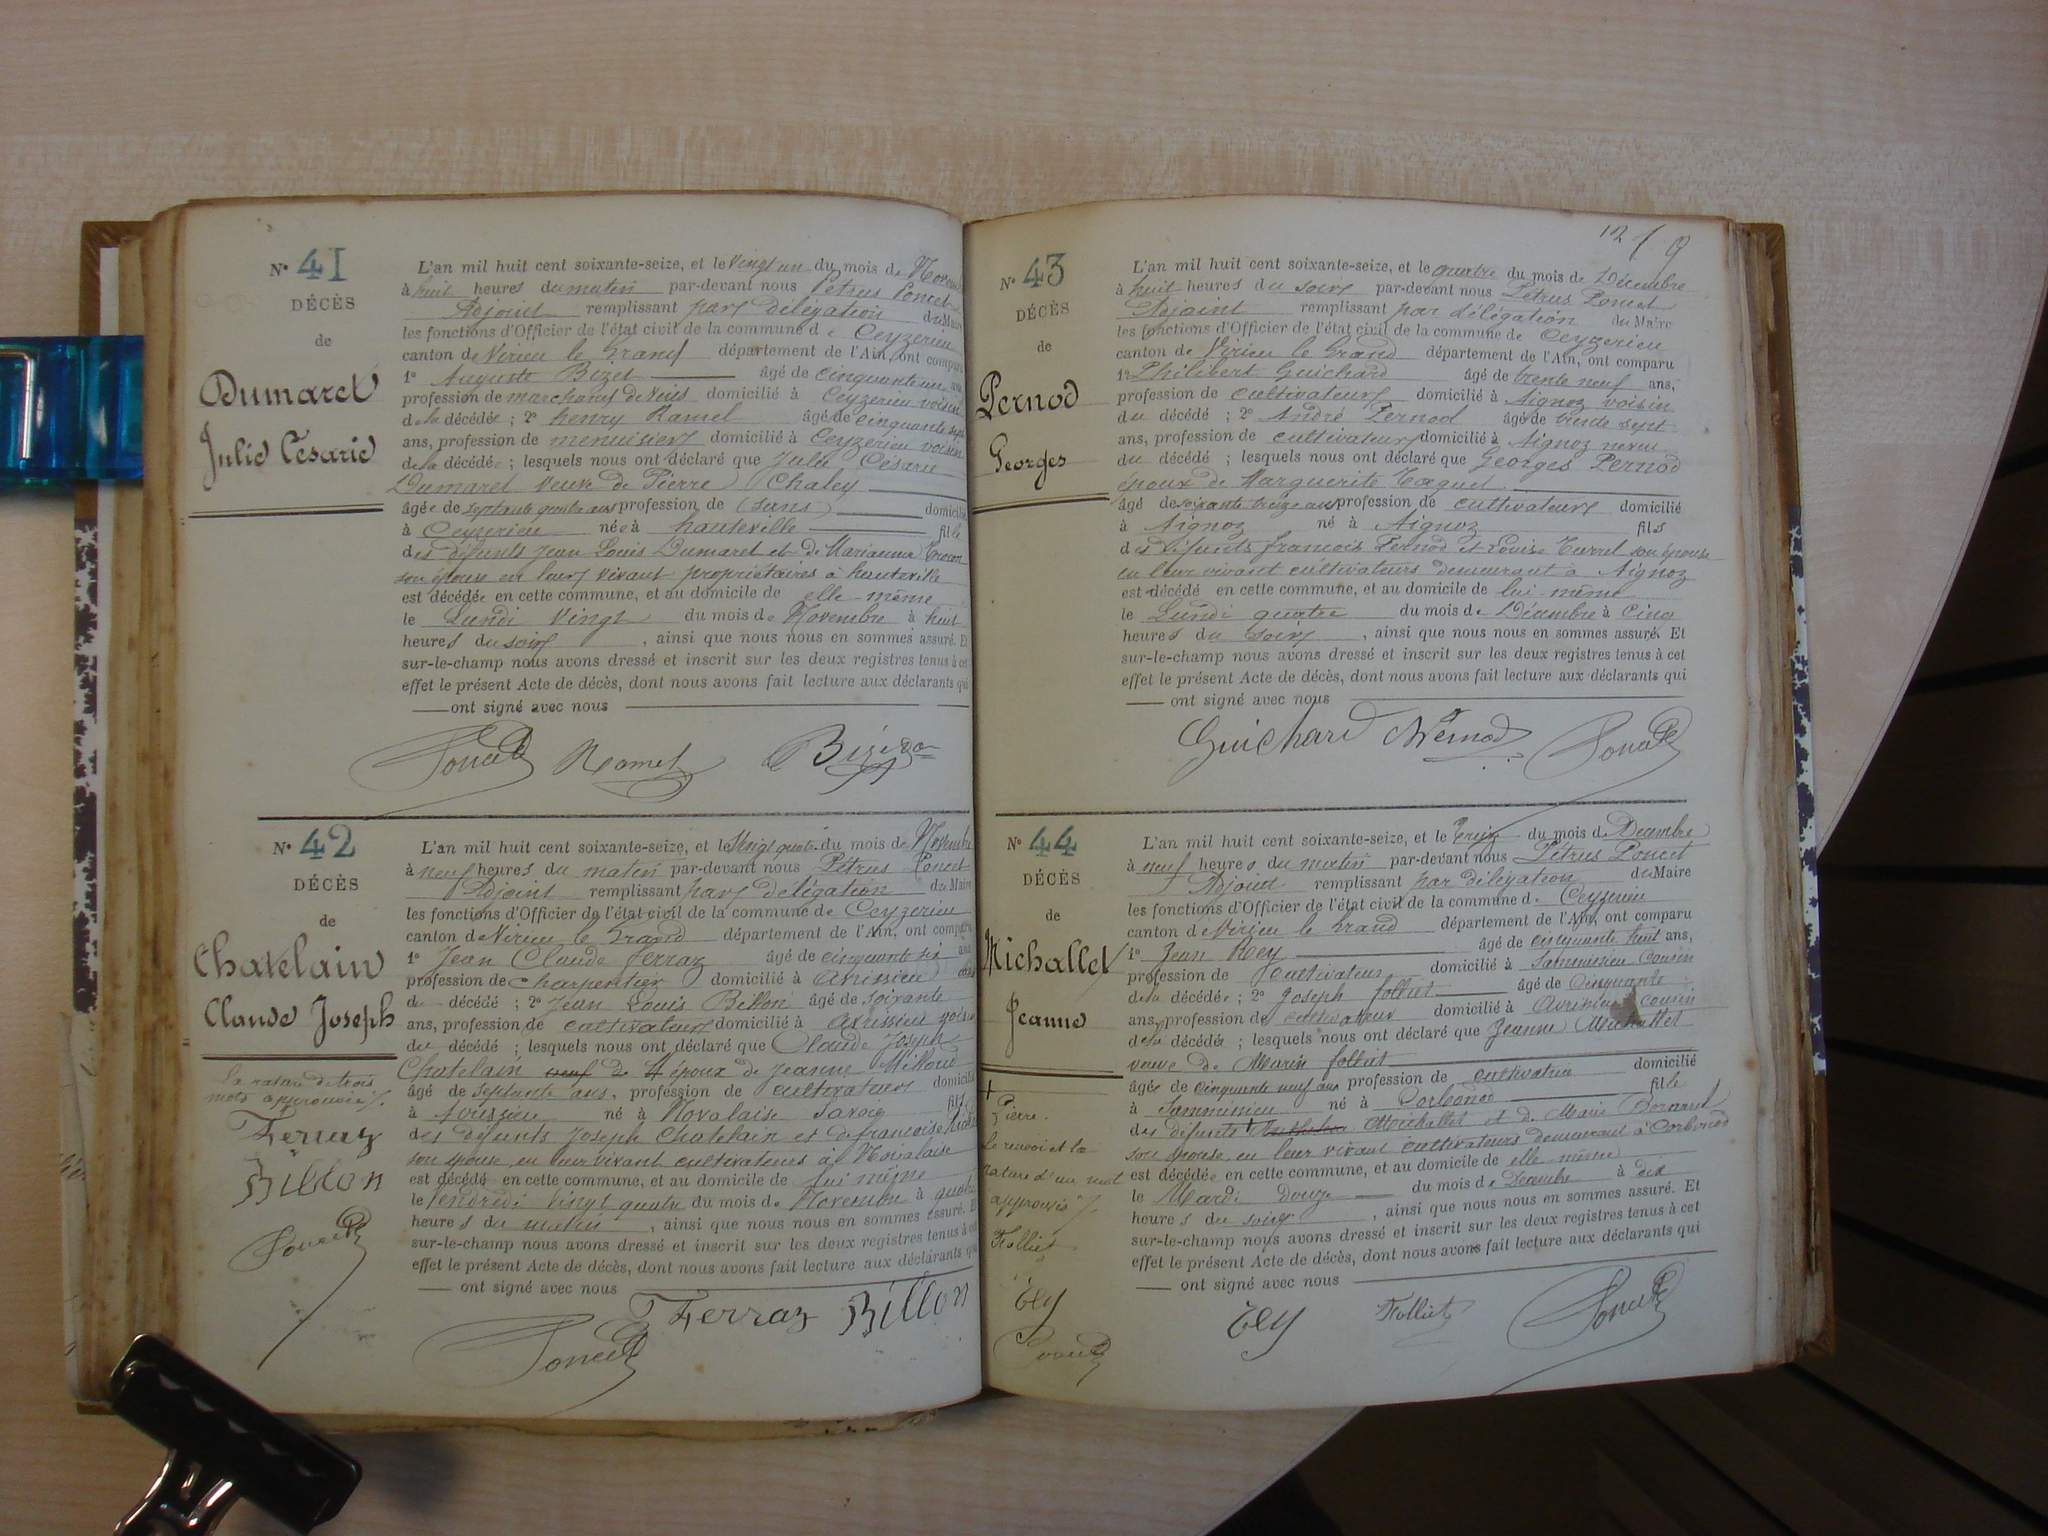 N° 41
DÉCÈS
de
Dumaret
Julie Césarie
L'an mil huit cent soixante-seize, et le vingt un du mois de
à huit heures du matin par-devant nous Pétrus Poncet
Adjoint remplissant par délégation du Maire
les fonctions d'Officier de l'état civil de la commune de Ceyzerieu
canton de Virieu le Grand département de l'Ain, ont comparu
1° Auguste Bizet âgé de cinquante ans
profession de marchand de domicilié à Ceyzerieu voisin
de la décédée ; 2° henry Ramel âgé de cinquante sept
ans, profession de menuisier domicilié à Ceyzerieu voisin
de la décédée ; lesquels nous ont déclaré que Julie Césarie
Dumaret veuve de Pierre Chaley
âgée de septante quatre ans profession de (sans) domicilié
à Ceyzerieu née à hauteville fille
des défunts Jean Louis Dumaret et de Marianne
son épouse en leur vivant propriétaires à hauteville
est décédée en cette commune, et au domicile de elle-même
le Lundi vingt du mois de Novembre à huit
heures du soir , ainsi que nous nous en sommes assuré. Et
sur-le-champ nous avons dressé et inscrit sur les deux registres tenus à cet
effet le présent Acte de décès, dont nous avons fait lecture aux déclarants qui
ont signé avec nous
Poncet Ramel
N° 42
DÉCÈS
de
Chatelain
Claude Joseph
la rature de trois
mots approuvée
Ferraz
Billon
Poncet
L'an mil huit cent soixante-seize, et le vingt quatre du mois de Novembre
à neuf heures du matin par-devant nous Pétrus Poncet
Adjoint remplissant par délégation du Maire
les fonctions d'Officier de l'état civil de la commune de Ceyzerieu
canton de Virieu le Grand département de l'Ain, ont comparu
1° Jean Claude Ferraz âgé de cinquante six ans
profession de charpentier domicilié à Avrissieu
du décédé ; 2° Jean Louis Billon âgé de soixante
ans, profession de cultivateur domicilié à Avrissieu voisin
du décédé ; lesquels nous ont déclaré que Claude Joseph
Chatelain époux de Jeanne
âgé de septante ans, profession de cultivateur domicilié
à Avrissieu né à Novalaise Savoie fils
des défunts Joseph Chatelain et de françoise
son épouse en leur vivant cultivateurs à Novalaise
est décédé en cette commune, et au domicile de lui même
le Vendredi vingt quatre du mois de Novembre à quatre
heures du matin , ainsi que nous nous en sommes assuré. Et
sur-le-champ nous avons dressé et inscrit sur les deux registres tenus à cet
effet le présent Acte de décès, dont nous avons fait lecture aux déclarants qui
ont signé avec nous
Ferraz Billon
Poncet
N° 43
DÉCÈS
de
Pernod
Georges
L'an mil huit cent soixante-seize, et le quatre du mois de Décembre
à huit heures du soir par-devant nous Pétrus Poncet
Adjoint remplissant par délégation du Maire
les fonctions d'Officier de l'état civil de la commune de Ceyzerieu
canton de Virieu le Grand département de l'Ain, ont comparu
1° Philibert Guichard âgé de trente neuf ans,
profession de cultivateur domicilié à Aignoz voisin
du décédé ; 2° André Pernod âgé de trente sept
ans, profession de cultivateur domicilié à Aignoz neveu
du décédé ; lesquels nous ont déclaré que Georges Pernod
époux de Marguerite
âgé de soixante treize ans profession de cultivateur domicilié
à Aignoz né à Aignoz fils
des défunts francois Pernod et Louise son épouse
en leur vivant cultivateurs demeurant à Aignoz
est décédé en cette commune, et au domicile de lui-même
le Lundi quatre du mois de Décembre à cinq
heures du soir , ainsi que nous nous en sommes assuré. Et
sur-le-champ nous avons dressé et inscrit sur les deux registres tenus à cet
effet le présent Acte de décès, dont nous avons fait lecture aux déclarants qui
ont signé avec nous
Guichard Pernod Poncet
N° 44
DÉCÈS
de
Michallet
Jeanne
Pierre.
Le renvoi et la
rature d'un mot
approuvés
Folliet
Rey
Poncet
L'an mil huit cent soixante-seize, et le treize du mois de Décembre
à neuf heures du matin par-devant nous Pétrus Poncet
Adjoint remplissant par délégation du Maire
les fonctions d'Officier de l'état civil de la commune de Ceyzerieu
canton de Virieu le Grand département de l'Ain, ont comparu
1° Jean Rey âgé de cinquante huit ans,
profession de cultivateur domicilié à Sammissieu cousin
de la décédée ; 2° Joseph folliet âgé de cinquante
ans, profession de cultivateur domicilié à Avrissieu cousin
de la décédée ; lesquels nous ont déclaré que Jeanne Michallet
veuve de Marin folliet
âgée de cinquante neuf ans profession de cultivatrice domicilié
à Sammissieu née à Corbonod fille
des défunts Michallet et de Marie Bornard
son épouse en leur vivant cultivateurs demeurant à Corbonod
est décédée en cette commune, et au domicile de elle-même
le Mardi douze du mois de Décembre à dix
heures du soir , ainsi que nous nous en sommes assuré. Et
sur-le-champ nous avons dressé et inscrit sur les deux registres tenus à cet
effet le présent Acte de décès, dont nous avons fait lecture aux déclarants qui
ont signé avec nous
Rey Folliet Poncet